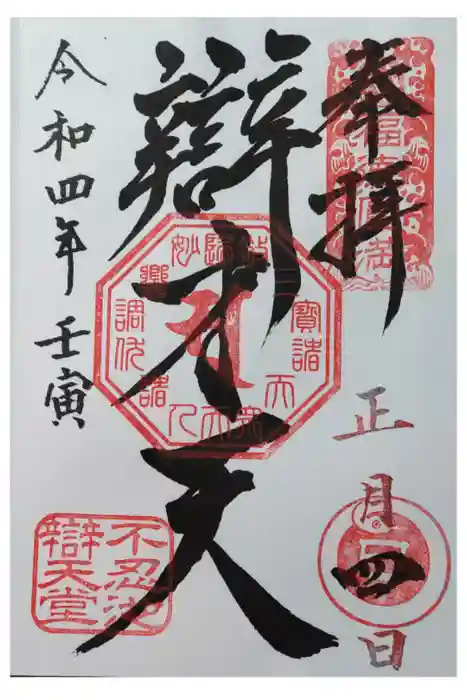 奉拝
正月四日
辯才天
令和四年壬寅
不忍池
辯天堂